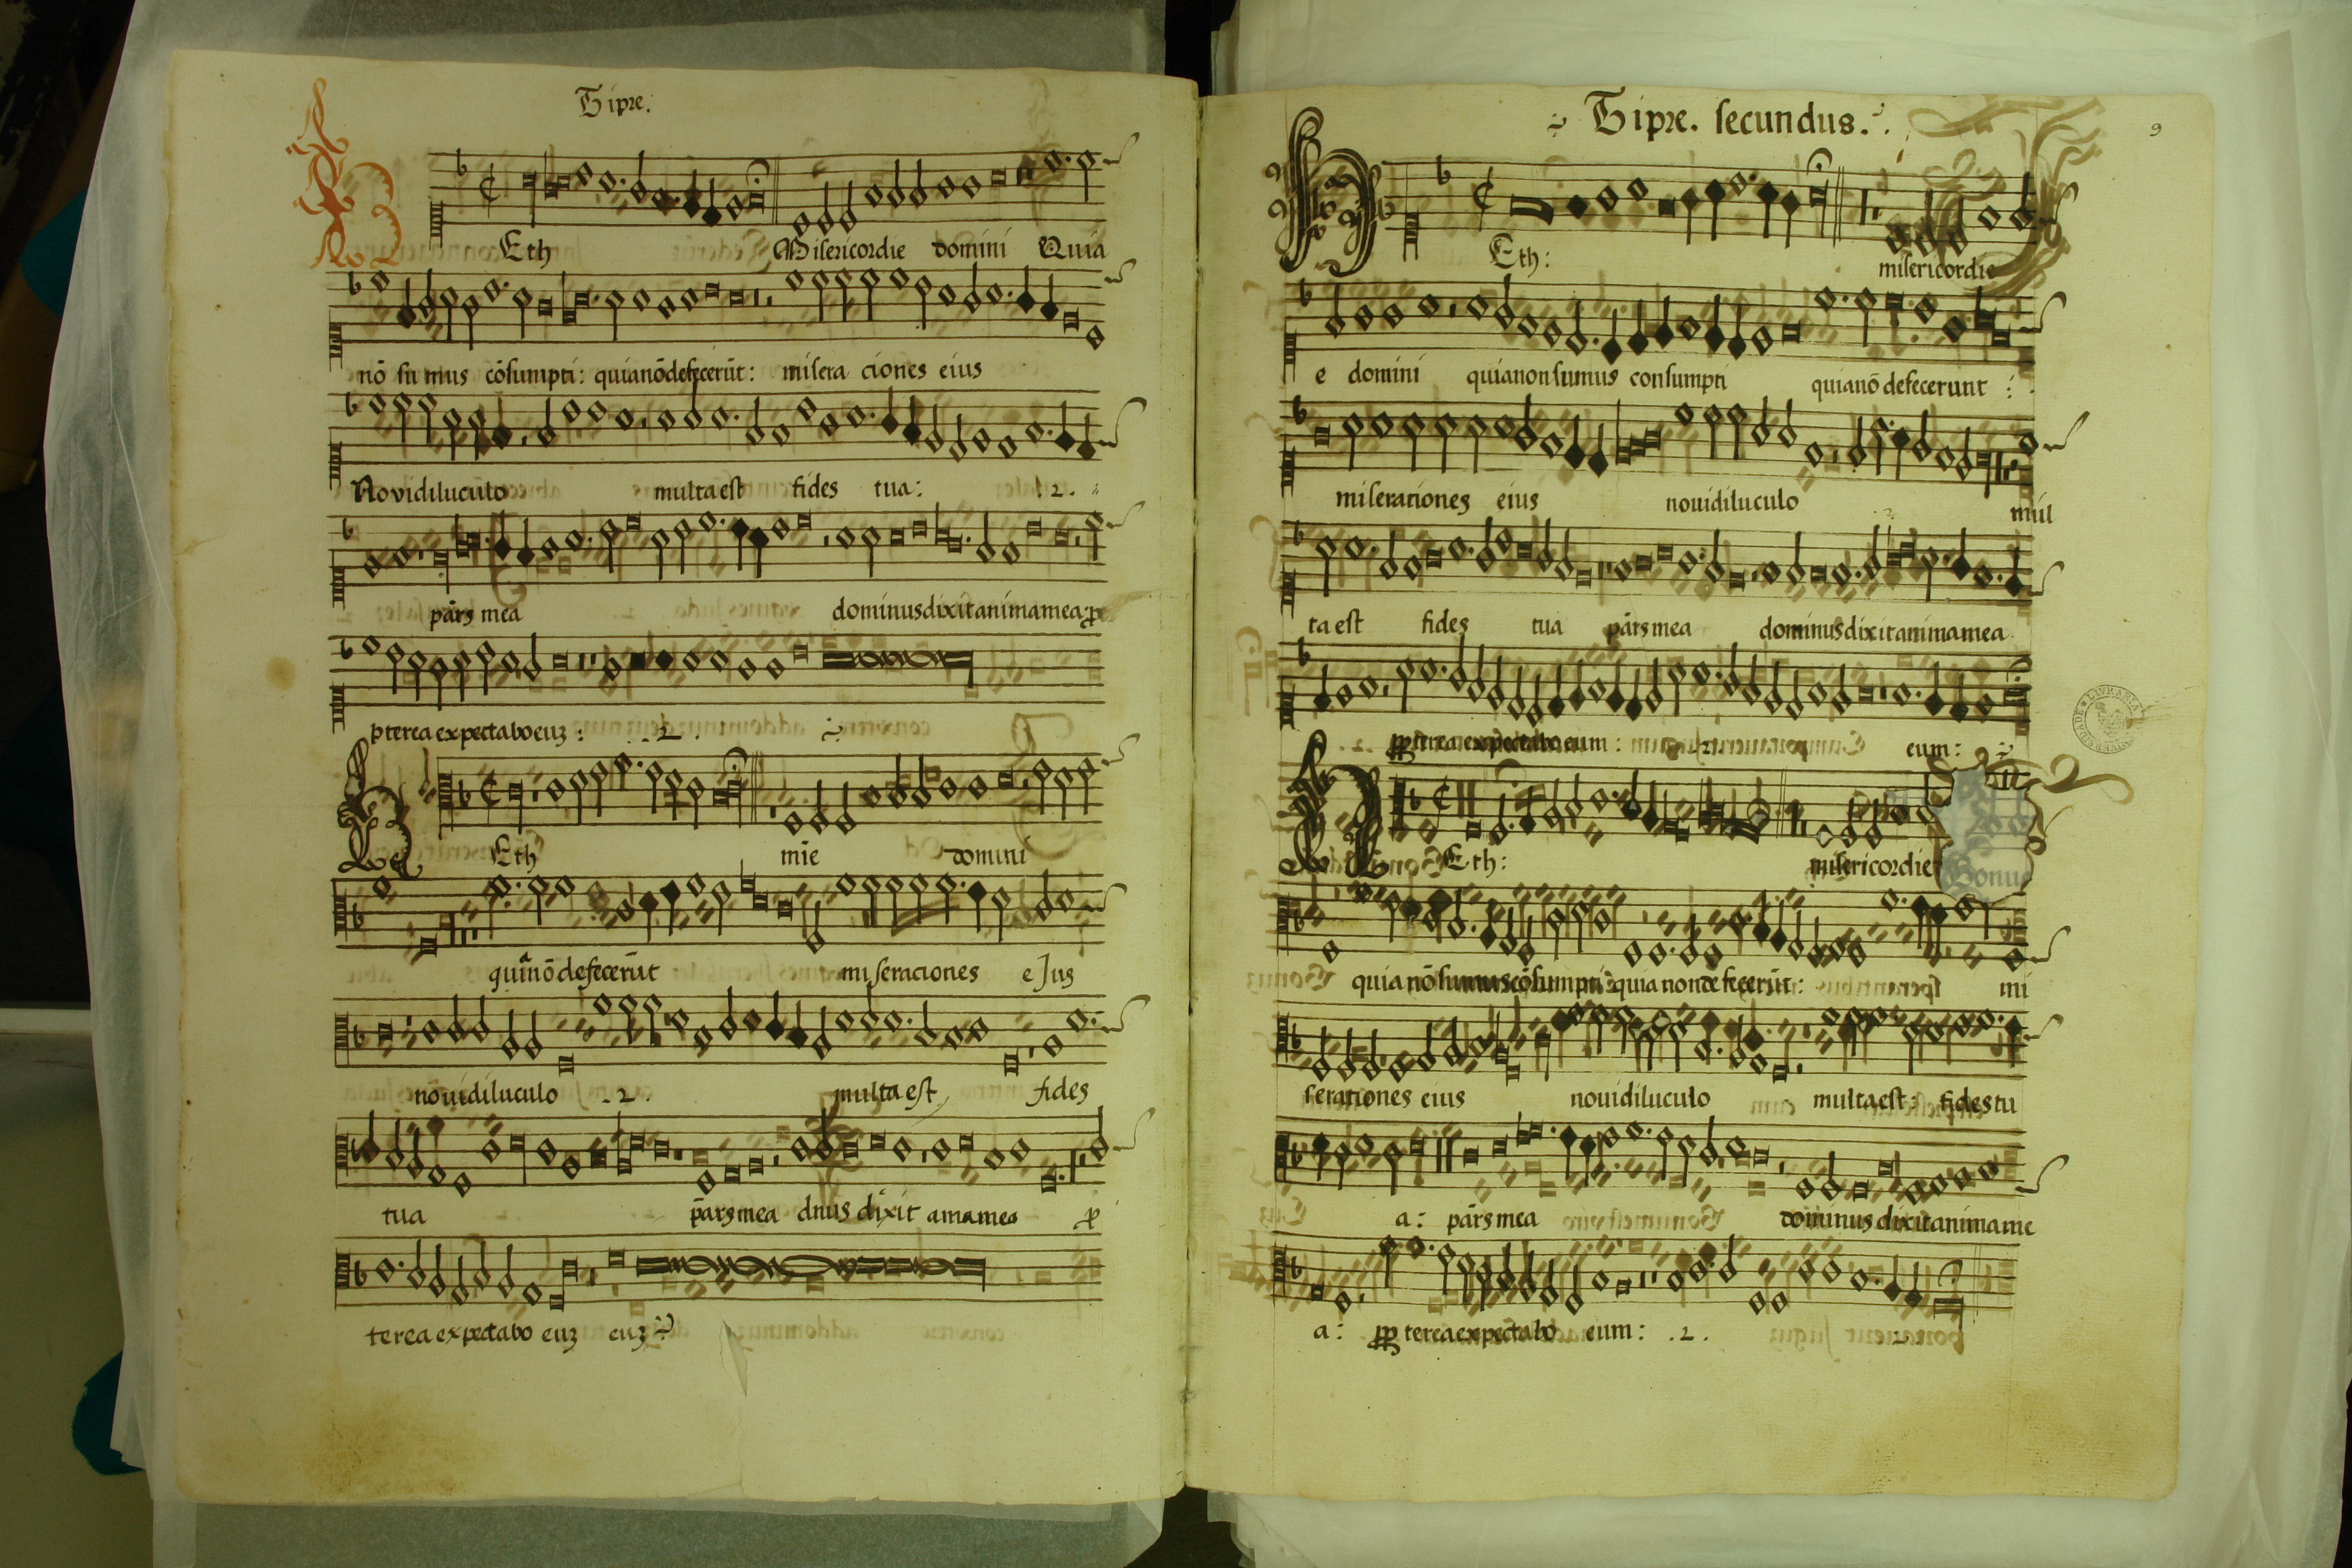 Tipre.
Eth Misericordie domini Quia
nō sumus cōsumpti: quia nō defecerūt: misera ciones eius
Novi diluculo multa est fides tua: .2.
pārs mea dominus dixit anima mea: p
pterea expectabo euz: .2.
Eth mīe domini
quia nō defecerūt miseraciones ejus
nōvi diluculo .2. multa est fides
tua pārs mea dnus dixit ama mea p
terea expectabo euz euz
Tipre. secundus.
9
Eth: misericordie
e domini quia non sumus consumpti quia nō defecerunt:
miserationes eius noui diluculo mul
ta est fides tua pārs mea dominus dixit anima mea
pp terea expectabo eum: eum:
Eth: misericordie
quia nō sumus cōsumpti: quia non defecerūt: mi
serationes eius noui diluculo multa est: fides tu
a: pārs mea dominus dixit anima me
a: pp terea expectabo eum: .2.